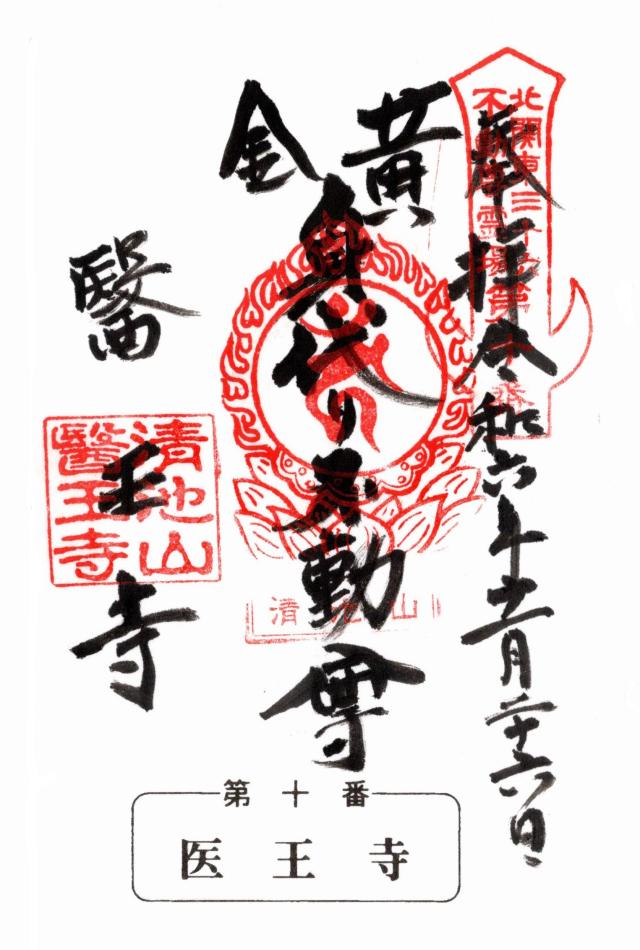 奉拝 令和六年十一月二十六日
北關東三十六
不動尊霊場第十番
黄金
身代り不動尊
清池山
醫王寺
清池山
醫王寺
第十番
医王寺